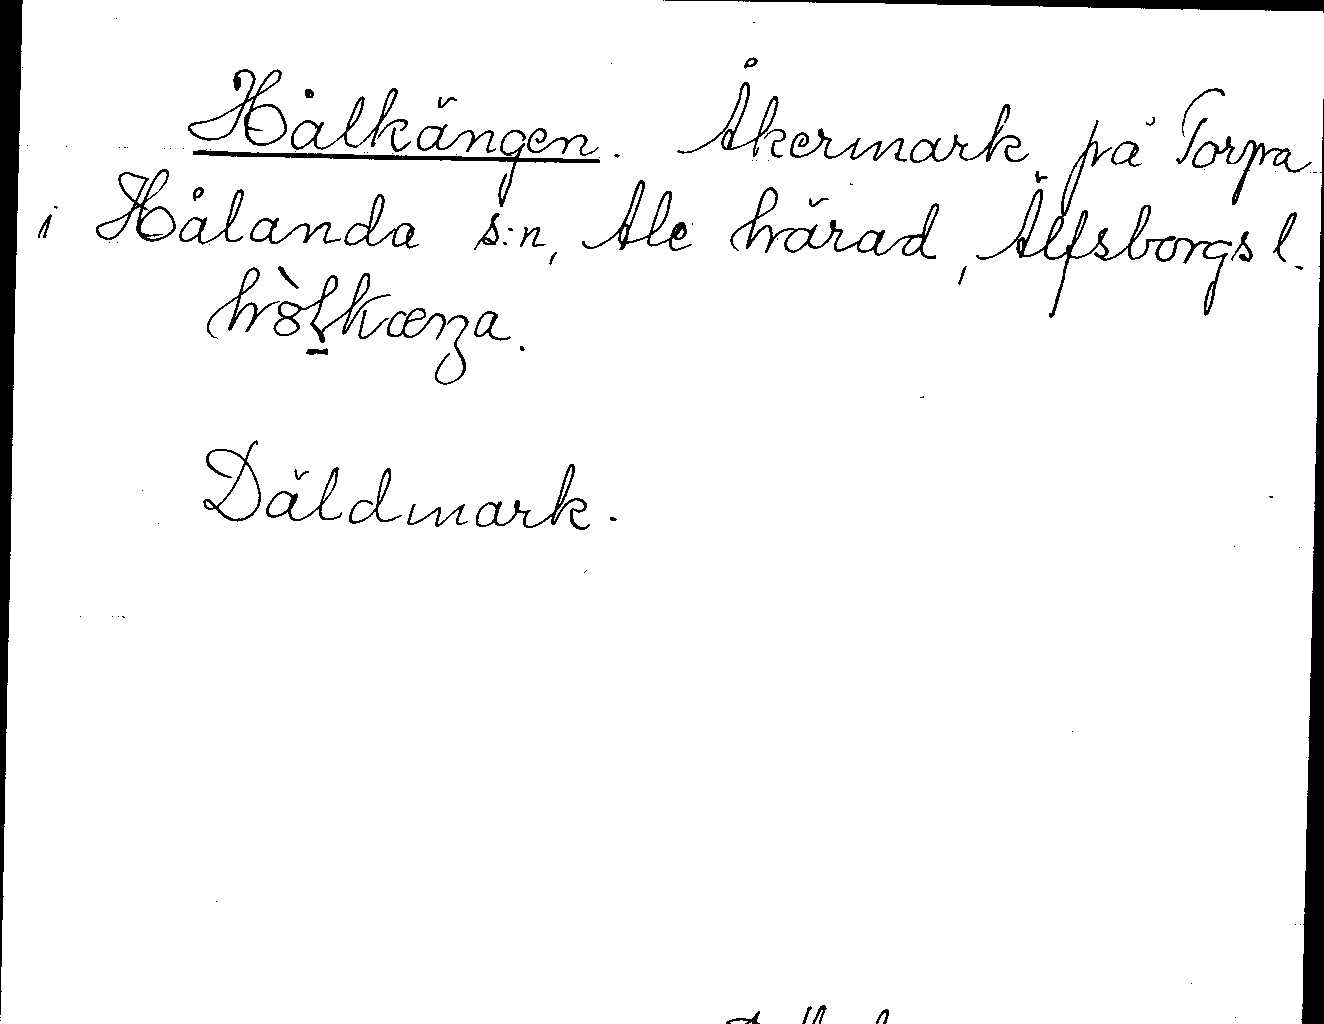 Hålkängen. Åkermark på Torpa
i Hålanda s:n, Ale härad, Älfsborgs l.
Däldmark.